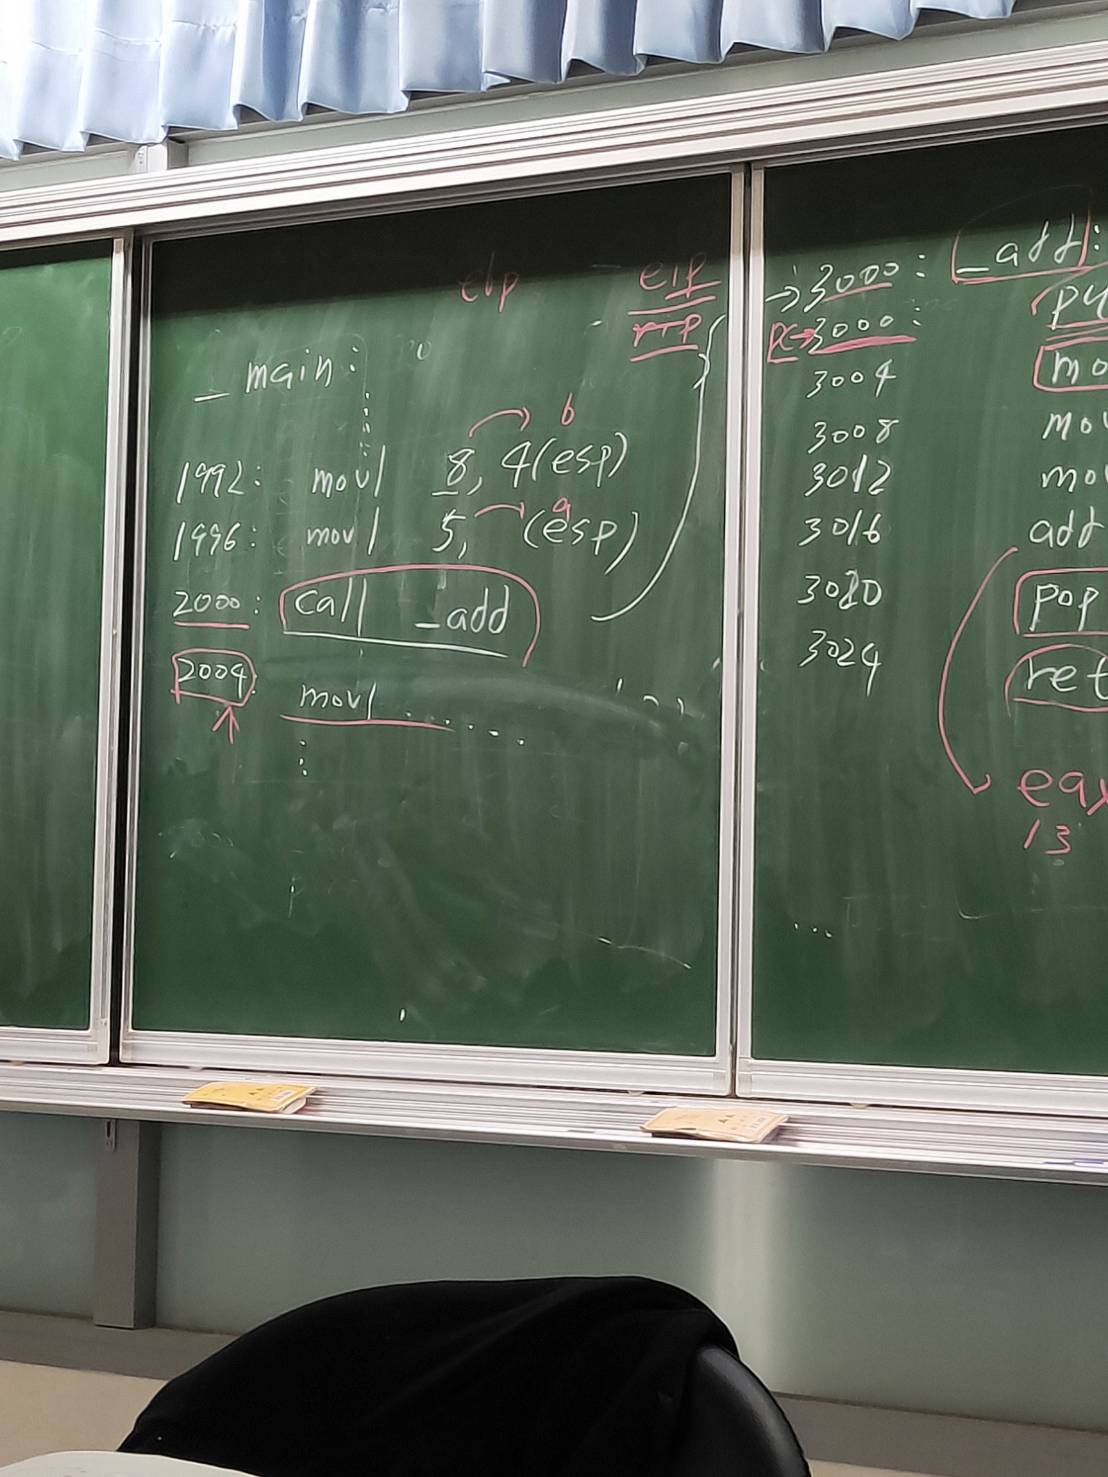 ebp
eip
rip
_main:
b
1992: movl 8, 4(esp)
a
1996: movl 5, (esp)
2000: call _add
2004: movl ......
⋮
→ 3000: _add:
PC→ 3000: pu
3004 mo
3008 mov
3012 mo
3016 add
3020 pop
3024 ret
eax
13
...